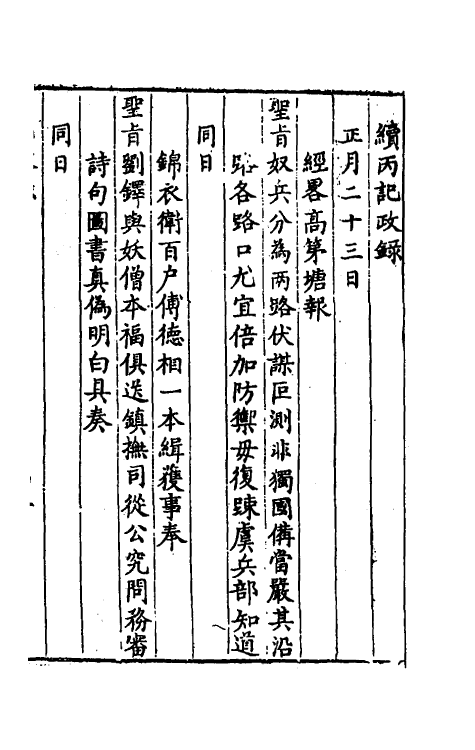 續丙記政錄
正月二十三日
經畧高第塘報
聖旨奴兵分為兩路伏謀叵測非獨國備當嚴其沿
路各路口尤宜倍加防禦毋復踈虞兵部知道
同日
錦衣衛百户傅德相一本緝獲事奉
聖旨劉鐸與妖僧本福俱送鎮撫司從公究問務審
詩句圖書真偽明白具奏
同日